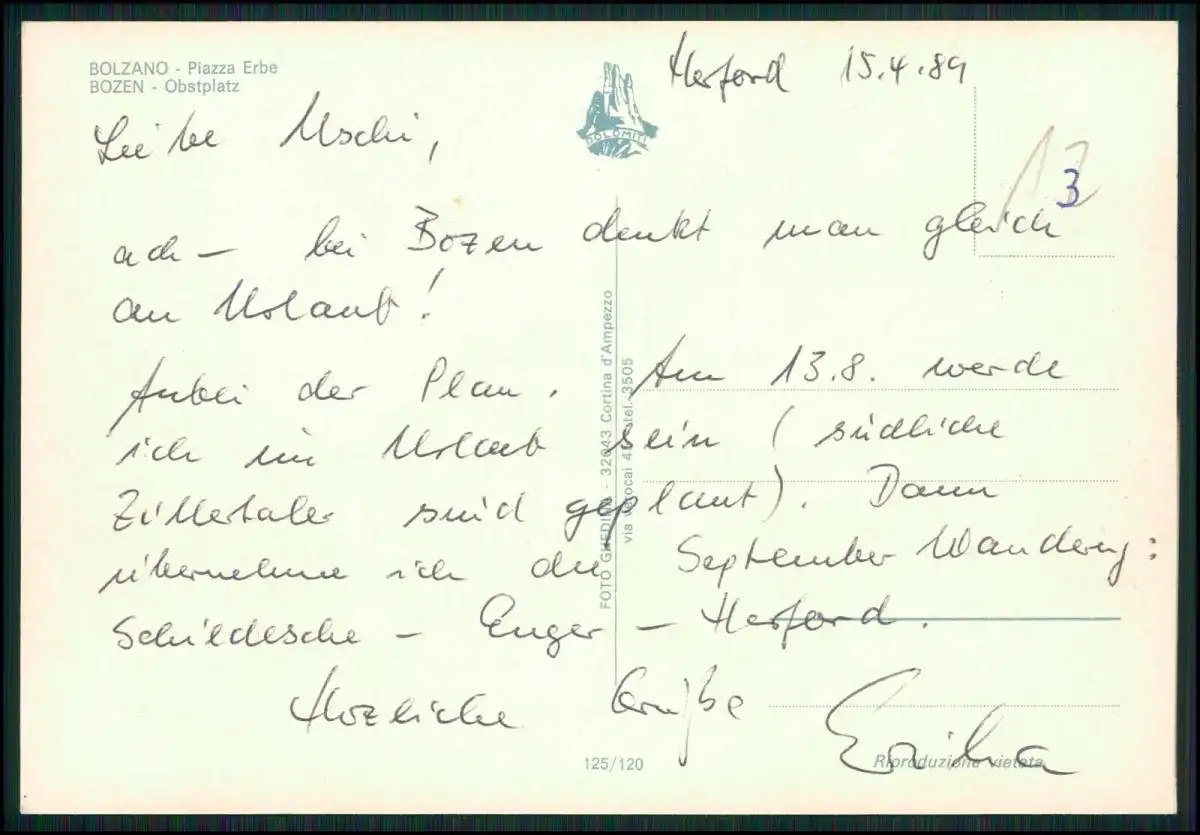 BOLZANO - Piazza Erbe
BOZEN - Obstplatz
DOLOMITI
Herford 15.4.89
Liebe Uschi,
ach – bei Bozen denkt man gleich
an Urlaub!
Anbei der Plan. Am 13.8. werde
ich im Urlaub sein (südliche
Zillertaler sind geplant). Dann
übernehme ich die September Wanderung:
Schildesche – Enger – Herford.
Herzliche Grüße Erika
3
FOTO GHEDINA - 32043 Cortina d'Ampezzo
tel. 3505
125/120
Riproduzione vietata